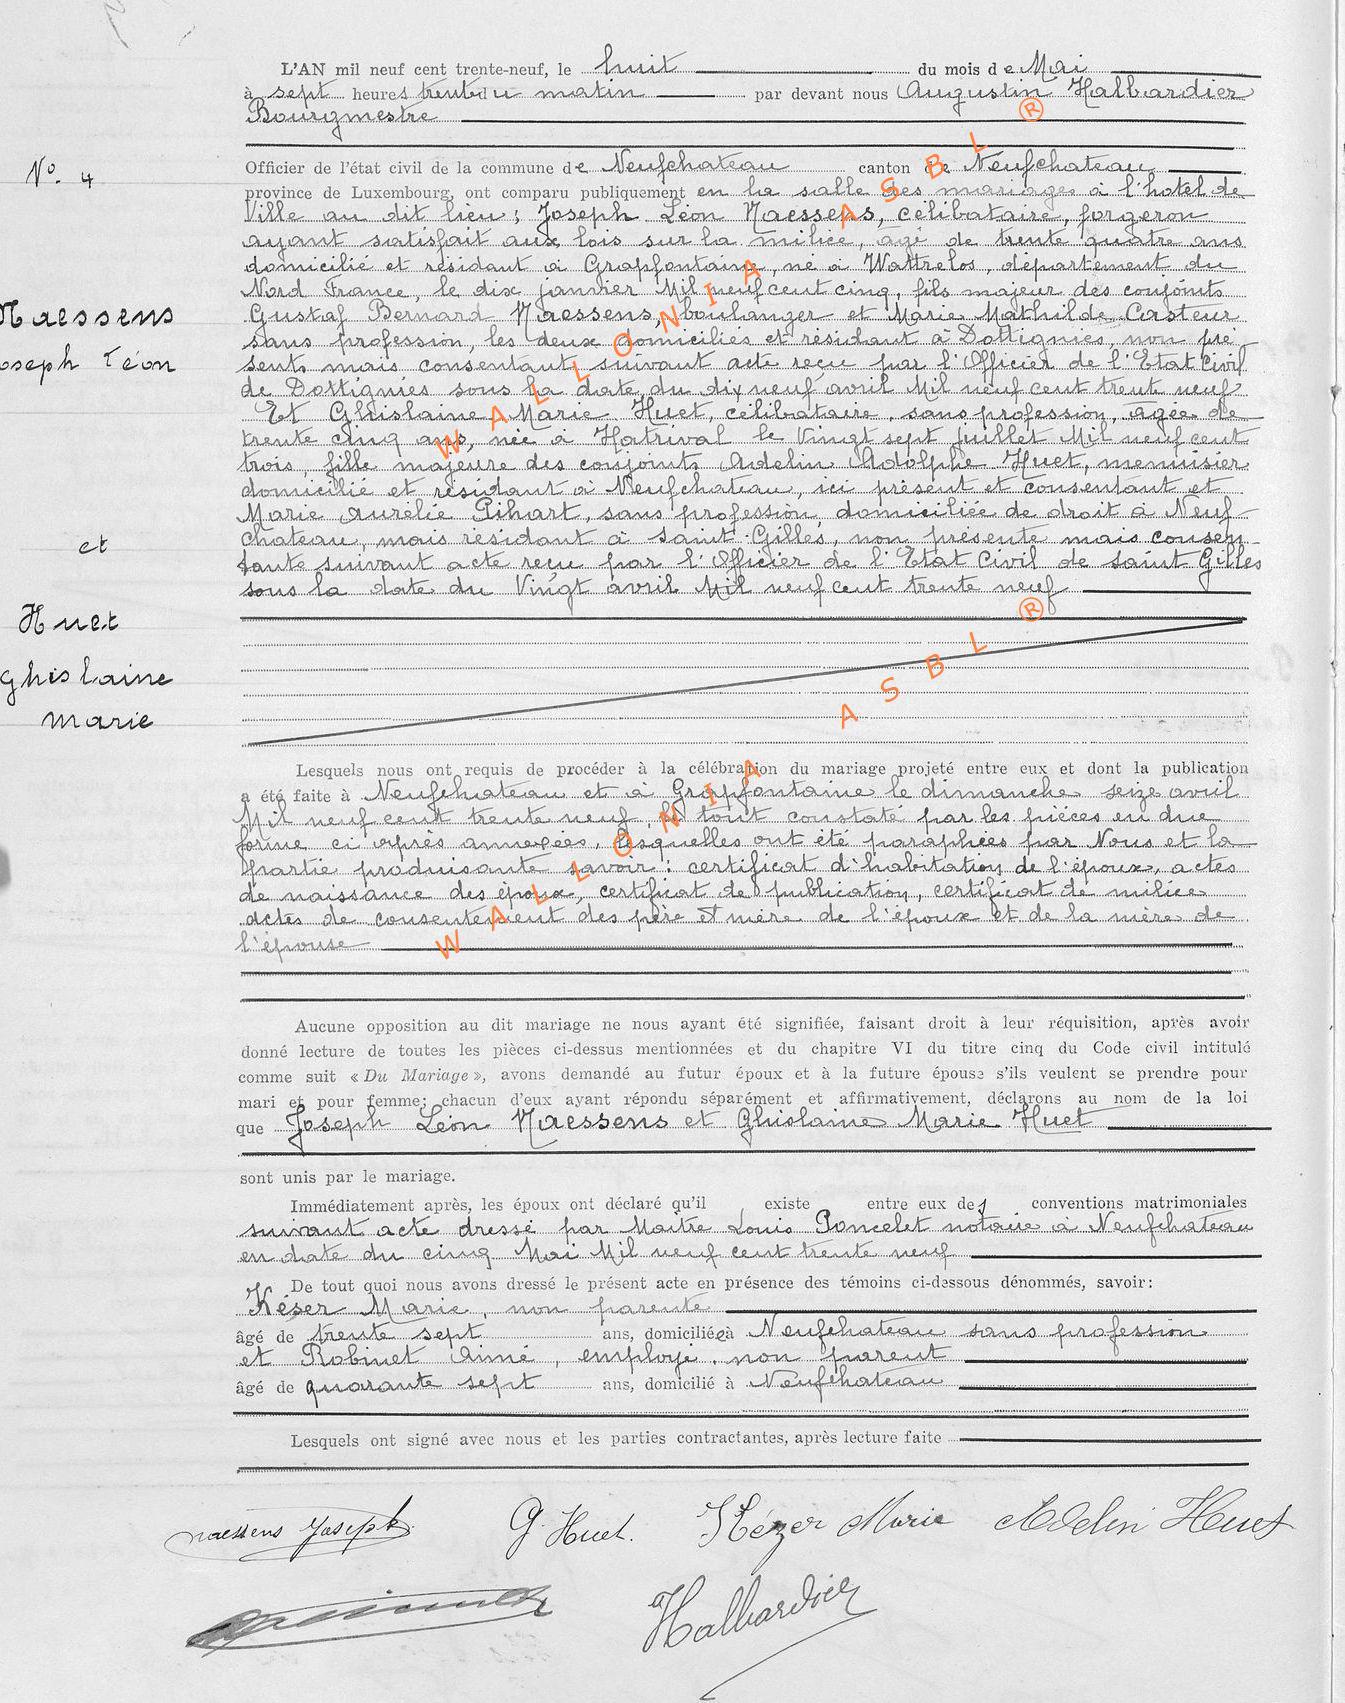 L'AN mil neuf cent trente-neuf, le huit du mois de Mai
à sept heures trente du matin par devant nous Augustin Halbardier
Bourgmestre
N° 4
Officier de l'état civil de la commune de Neufchateau canton de Neufchateau
province de Luxembourg, ont comparu publiquement en la salle des mariages à l'hotel de
Ville au dit lieu ; Joseph Léon Naessens, célibataire, forgeron
ayant satisfait aux lois sur la milice, âgé de trente quatre ans
domicilié et résidant à Grapfontaine, né à Wattrelos, département du
Nord France, le dix janvier Mil neuf cent cinq, fils majeur des conjoints
Naessens
Joseph Léon
Gustaf Bernard Naessens, boulanger et Marie Mathilde Casteur
sans profession, les deux domiciliés et résidant à Dottignies, non pré
sents mais consentant suivant acte reçu par l'Officier de l'Etat Civil
de Dottignies sous la date du dix neuf avril Mil neuf cent trente neuf
Et Ghislaine Marie Huet, célibataire, sans profession, agée de
trente cinq ans, née à Hatrival le Vingt sept juillet Mil neuf cent
trois, fille majeure des conjoints Adelin Adolphe Huet, menuisier
domicilié et résidant à Neufchateau, ici présent et consentant et
Marie Aurélie Pihart, sans profession, domiciliée de droit à Neuf
chateau, mais résidant à Saint-Gilles, non présente mais consen
tante suivant acte reçu par l'Officier de l'Etat Civil de Saint Gilles
sous la date du Vingt avril Mil neuf cent trente neuf
et
Huet
Ghislaine
Marie
Lesquels nous ont requis de procéder à la célébration du mariage projeté entre eux et dont la publication
a été faite à Neufchateau et à Grapfontaine le dimanche seize avril
Mil neuf cent trente neuf, le tout constaté par les pièces en due
forme ci après annexées, lesquelles ont été paraphées par Nous et la
partie produisante savoir : certificat d'habitation de l'époux, actes
de naissance des époux, certificat de publication, certificat de milice
actes de consentement des père et mère de l'époux et de la mère de
l'épouse
Aucune opposition au dit mariage ne nous ayant été signifiée, faisant droit à leur réquisition, après avoir
donné lecture de toutes les pièces ci-dessus mentionnées et du chapitre VI du titre cinq du Code civil intitulé
comme suit « Du Mariage », avons demandé au futur époux et à la future épouse s'ils veulent se prendre pour
mari et pour femme; chacun d'eux ayant répondu séparément et affirmativement, déclarons au nom de la loi
que Joseph Léon Naessens et Ghislaine Marie Huet
sont unis par le mariage.
Immédiatement après, les époux ont déclaré qu'il existe entre eux des conventions matrimoniales
suivant acte dressé par Maitre Louis Poncelet notaire à Neufchateau
en date du cinq Mai Mil neuf cent trente neuf
De tout quoi nous avons dressé le présent acte en présence des témoins ci-dessous dénommés, savoir:
Késer Marie, non parente
âgé de trente sept ans, domiciliée à Neufchateau sans profession
et Robinet Aimé, employé, non parent
âgé de quarante sept ans, domicilié à Neufchateau
Lesquels ont signé avec nous et les parties contractantes, après lecture faite
Naessens Joseph G. Huet. Kézer Marie Adelin Huet
Halbardier
WALLONIA ASBL ®
WALLONIA ASBL ®